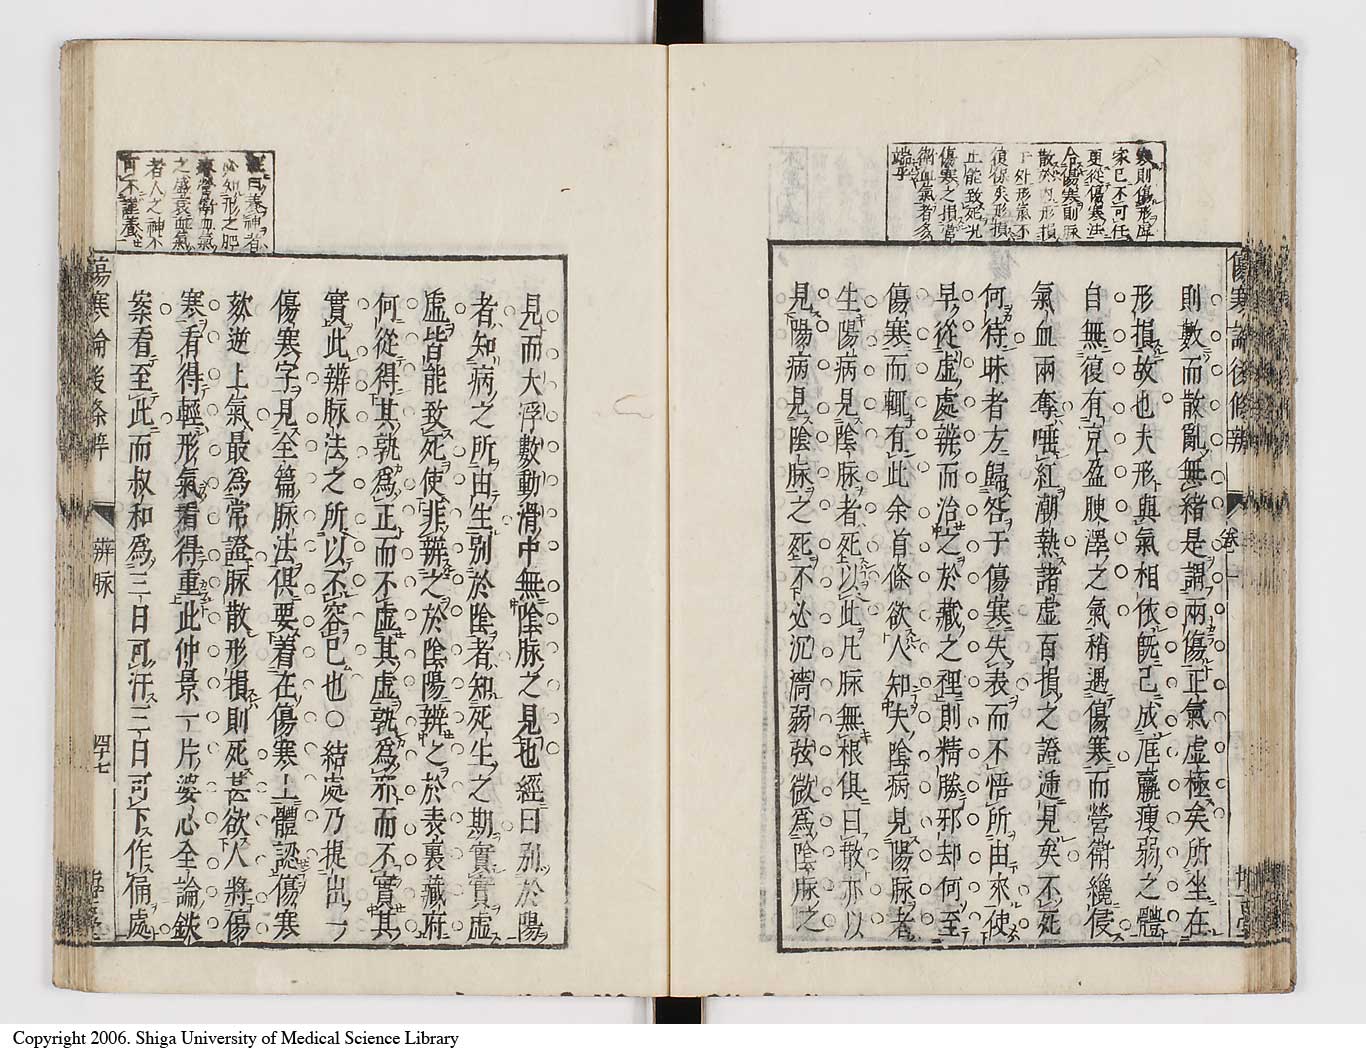 寒則傷形虛
家已不可任
更從傷寒法
合傷寒則脉
散於內形損
于外形氣不
復保矣形損
止能致死尤
傷寒之損當
術血氣者多
哉乎
傷寒論後條辨
卷一
則數而散亂無緒是謂兩傷正氣虛極矣所坐在
形損故也夫形與氣相依旣已成尫羸瘦弱之體
自無復有克盈腴澤之氣稍遇傷寒而營衛纔侵
氣血兩奪唾紅潮熱諸虛百損之證逓見矣不死
何待昧者方歸咎于傷寒失表而不悟所由來使
早從虛處辨而治之於藏之裡則精勝邪却何至
傷寒而輒有此余首條欲人知夫陰病見陽脉者
生陽病見陰脉者死以此凡脉無根俱曰散亦以
見陽病見陰脉之死不必沉濇弱弦微爲陰脉之
見而大浮數動滑中無陰脉之見也經曰別於陽
者知病之所由生別於陰者知死生之期實實虛
虛皆能致死使非辨之於陰陽辨之於表裏藏府
何從得其孰爲正而不虛其虛孰爲邪而不實其
實此辨脉法之所以不容已也○結處乃提出一
傷寒字見至篇脉法俱要着在傷寒上體認傷寒
欬逆上氣最爲常證脉散形損則死甚欲人將傷
寒看得輕形氣看得重此仲景一片婆心全論鈌
案看至此而叔和爲三日可汗三日可下作俑處
經曰養神者
必知形之肥
瘦營衛血氣
之盛衰血氣
者人之神不
可不謹養
傷寒論後條辨
辨脉
四十七